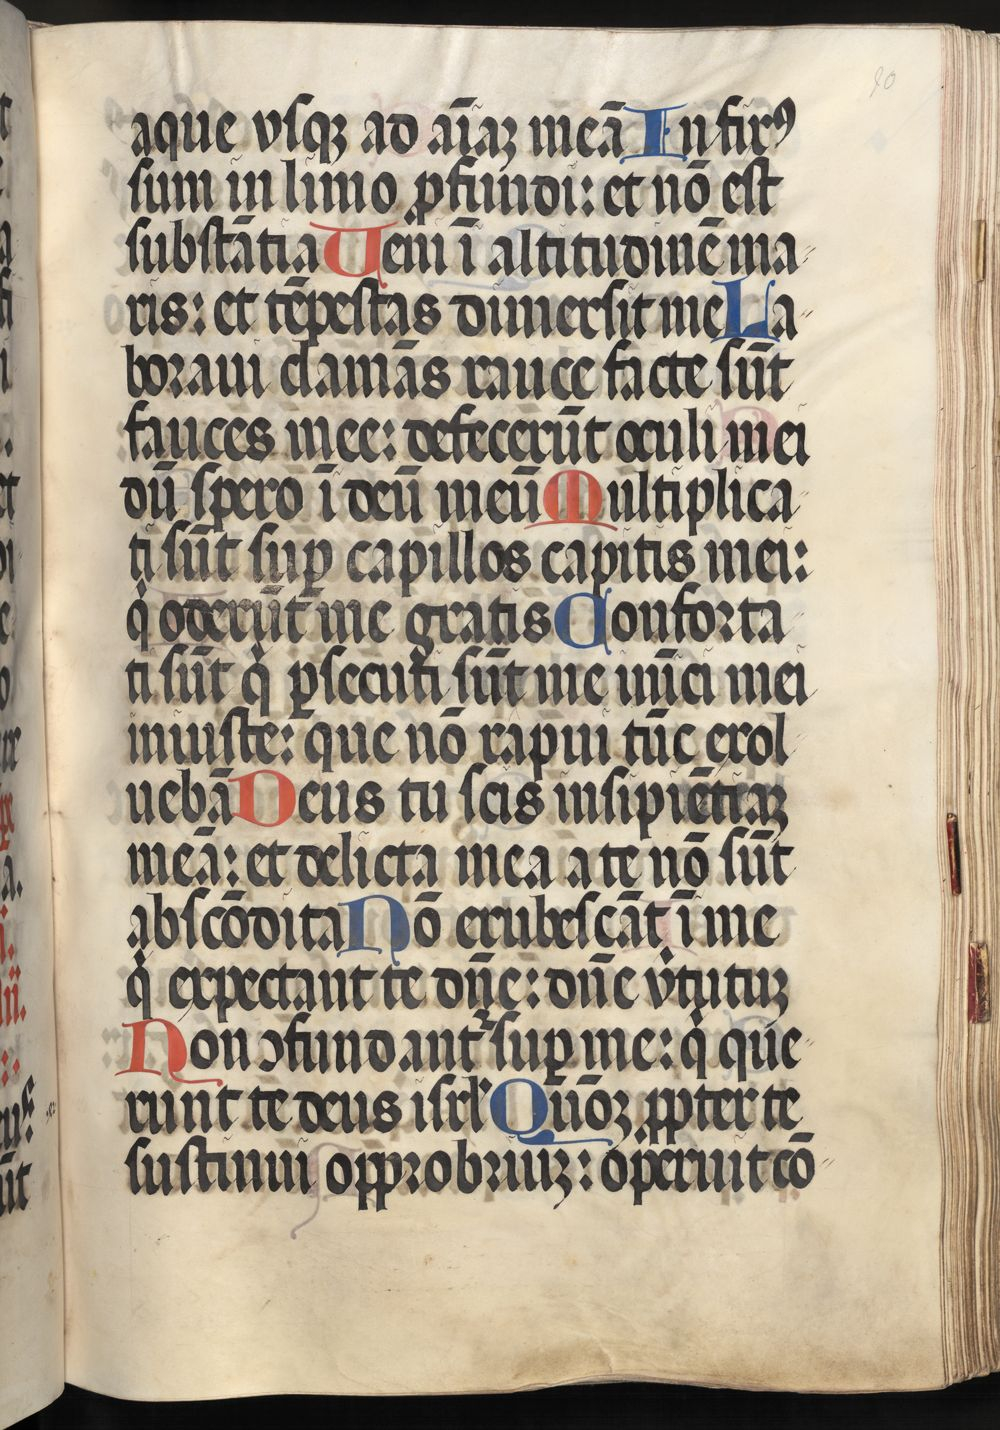 aque vsqꝫ ad aīaꝫ meā Infixꝰ
sum in limo ꝓfundi: et nō est
substātia Veni ī altitudinē ma-
ris: et tēpestas dimersit me La-
boraui clamās rauce facte sūt
fauces mee: defecerūt oculi mei
dū spero ī deū meū Multiplica-
ti sūt suꝑ capillos capitis mei:
qͥ oderūt me gratis Conforta
ti sūt qͥ ꝑsecuti sūt me inīci mei
iniuste: que nō rapui tūc exol
uebā Deus tu scis insipiētiaꝫ
meā: et delicta mea a te nō sūt
abscōdita Nō erubescāt ī me
qͥ expectant te dn̄e: dn̄e v̓tutuꝫ
Non ↄfundant᷑ suꝑ me: qͥ que-
runt te deus isrl̓ Qm̄ ꝓpter te
sustinui opprobriuꝫ: operuit cō-